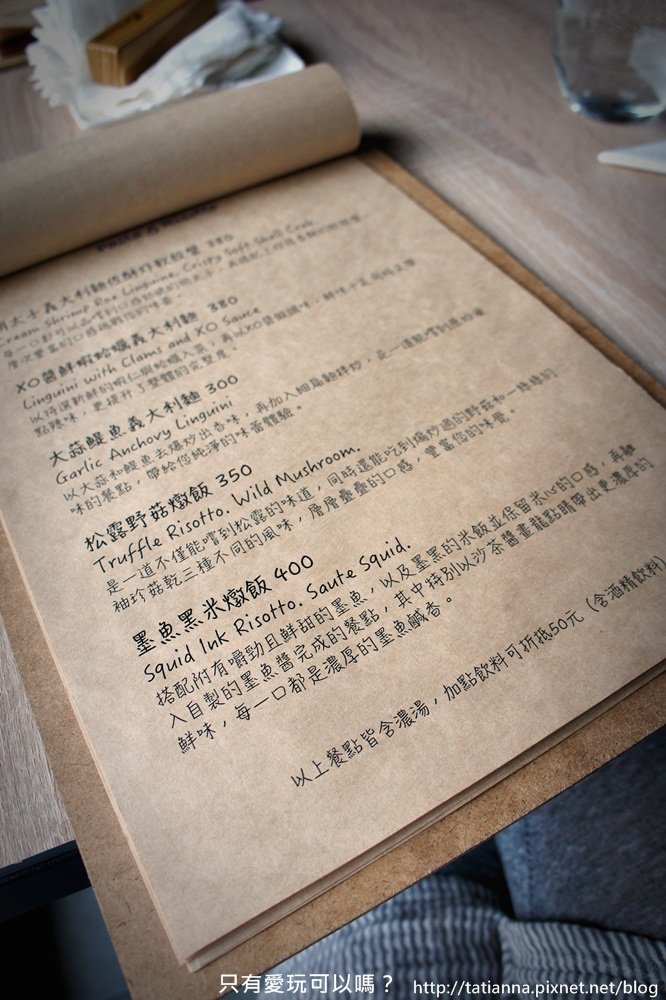 明太子義大利麵佐酥炸軟殼蟹 380
Cream Shrimp Roe Linguine. Crispy Soft Shell Crab
XO醬鮮蝦蛤蠣義大利麵 380
Linguini with Clams and XO Sauce
以特選新鮮的蝦仁與蛤蠣入菜，再以XO醬做調味，鮮味十足同時又帶
點辣味，更提升了整體的完整度。
大蒜鯷魚義大利麵 300
Garlic Anchovy Linguini
以大蒜和鯷魚去爆炒出香味，再加入細扁麵拌炒，是一道能嚐到原始
味的餐點，帶給您純淨的味蕾體驗。
松露野菇燉飯 350
Truffle Risotto. Wild Mushroom.
是一道不僅能嚐到松露的味道，同時還能吃到煸炒過的野菇和一絲絲的
袖珍菇乾三種不同的風味，層層疊疊的口感，豐富您的味覺。
墨魚黑米燉飯 400
Squid Ink Risotto. Saute Squid.
搭配附有嚼勁且鮮甜的墨魚，以及墨黑的米飯並保留米心的口感，再融
入自製的墨魚醬完成的餐點，其中特別以沙茶醬畫龍點睛帶出更濃厚的
鮮味，每一口都是濃厚的墨魚鹹香。
以上餐點皆含濃湯，加點飲料可折抵50元 (含酒精飲料)
只有愛玩可以嗎？ http://tatianna.pixnet.net/blog